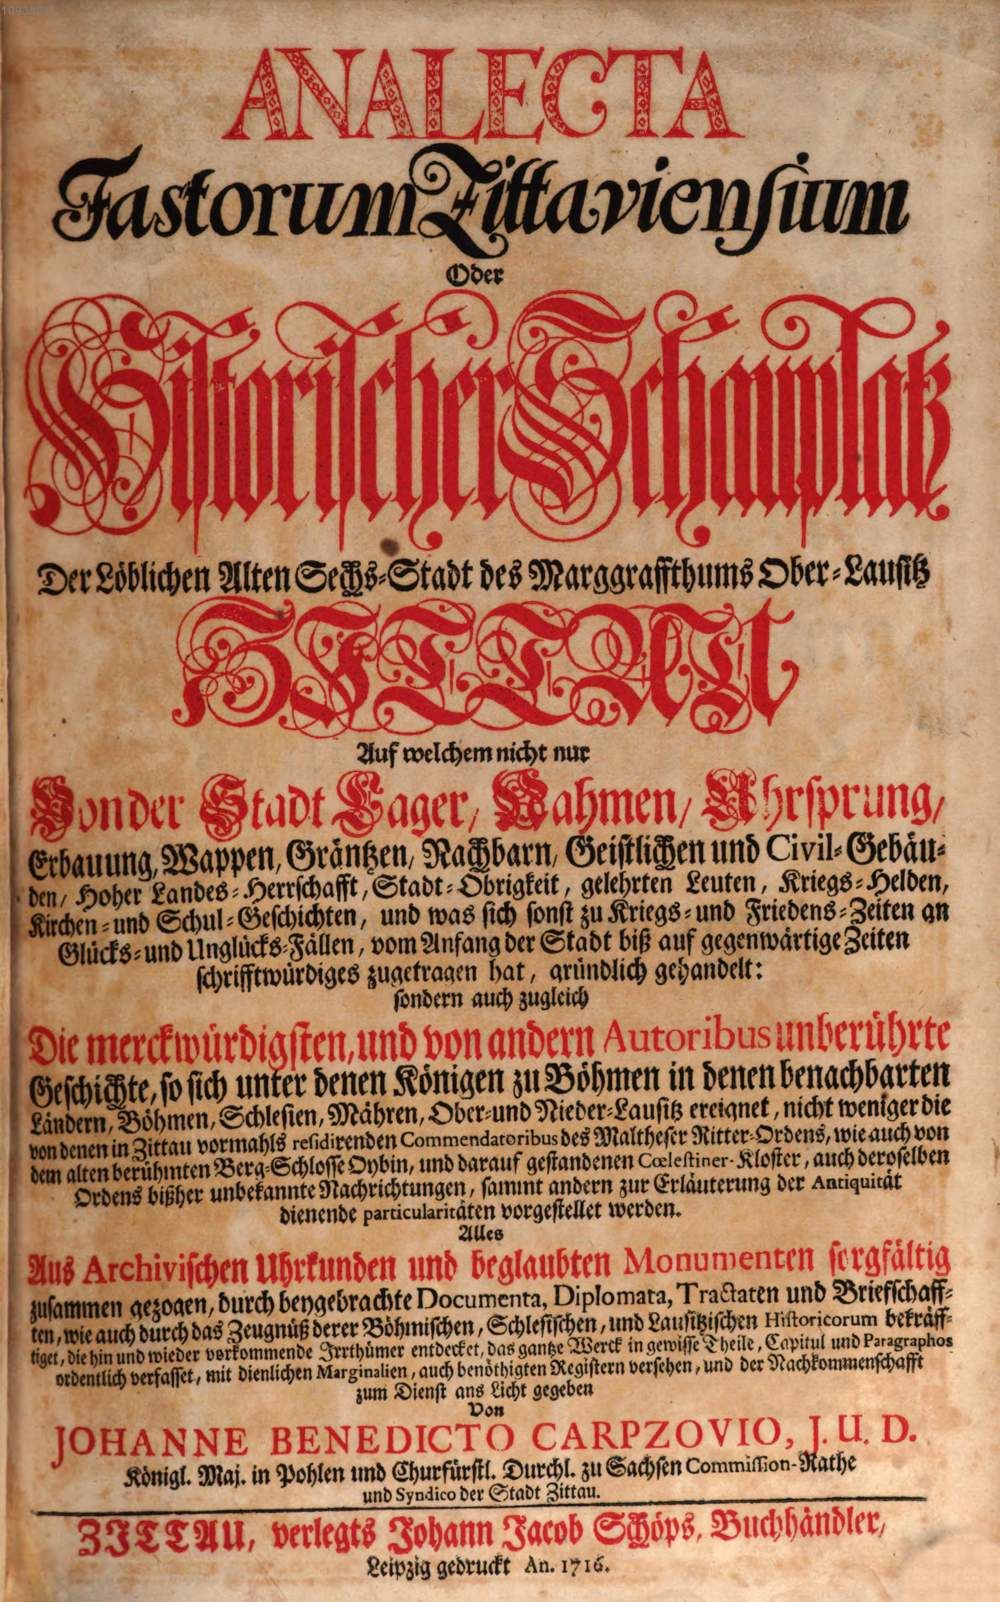 ANALECTA
Fastorum Zittaviensium
Oder
Historischer Schauplatz
Der Löblichen Alten Sechs-Stadt des Marggraffthums Ober-Lausitz
ZITTAU
Auf welchem nicht nur
Von der Stadt Lager, Nahmen, Uhrsprung,
Erbauung, Wappen, Gräntzen, Nachbarn, Geistlichen und Civil-Gebäu-
den, Hoher Landes-Herrschafft, Stadt-Obrigkeit, gelehrten Leuten, Kriegs-Helden,
Kirchen- und Schul-Geschichten, und was sich sonst zu Kriegs- und Friedens-Zeiten an
Glücks- und Unglücks-Fällen, vom Anfang der Stadt biß auf gegenwärtige Zeiten
schrifftwürdiges zugetragen hat, gründlich gehandelt:
sondern auch zugleich
Die merckwürdigsten, und von andern Autoribus unberührte
Geschichte, so sich unter denen Königen zu Böhmen in denen benachbarten
Ländern, Böhmen, Schlesien, Mähren, Ober- und Nieder-Lausitz ereignet, nicht weniger die
von denen in Zittau vormahls residirenden Commendatoribus des Maltheser Ritter-Ordens, wie auch von
dem alten berühmten Berg-Schlosse Oybin, und darauf gestandenen Cœlestiner-Kloster, auch deroselben
Ordens bißher unbekannte Nachrichtungen, sammt andern zur Erläuterung der Antiquität
dienende particularitäten vorgestellet werden.
Alles
Aus Archivischen Uhrkunden und beglaubten Monumenten sorgfältig
zusammen gezogen, durch beygebrachte Documenta, Diplomata, Tractaten und Briefschaff-
ten, wie auch durch das Zeugnüß derer Böhmischen, Schlesischen, und Lausitzischen Historicorum bekräff-
tiget, die hin und wieder vorkommende Irrthümer entdecket, das gantze Werck in gewisse Theile, Capitul und Paragraphos
ordentlich verfasset, mit dienlichen Marginalien, auch benöthigten Registern versehen, und der Nachkommenschafft
zum Dienst ans Licht gegeben
Von
JOHANNE BENEDICTO CARPZOVIO, J. U. D.
Königl. Maj. in Pohlen und Churfürstl. Durchl. zu Sachsen Commission-Rathe
und Syndico der Stadt Zittau.
ZITTAU, verlegts Johann Jacob Schöps, Buchhändler,
Leipzig gedruckt An. 1716.